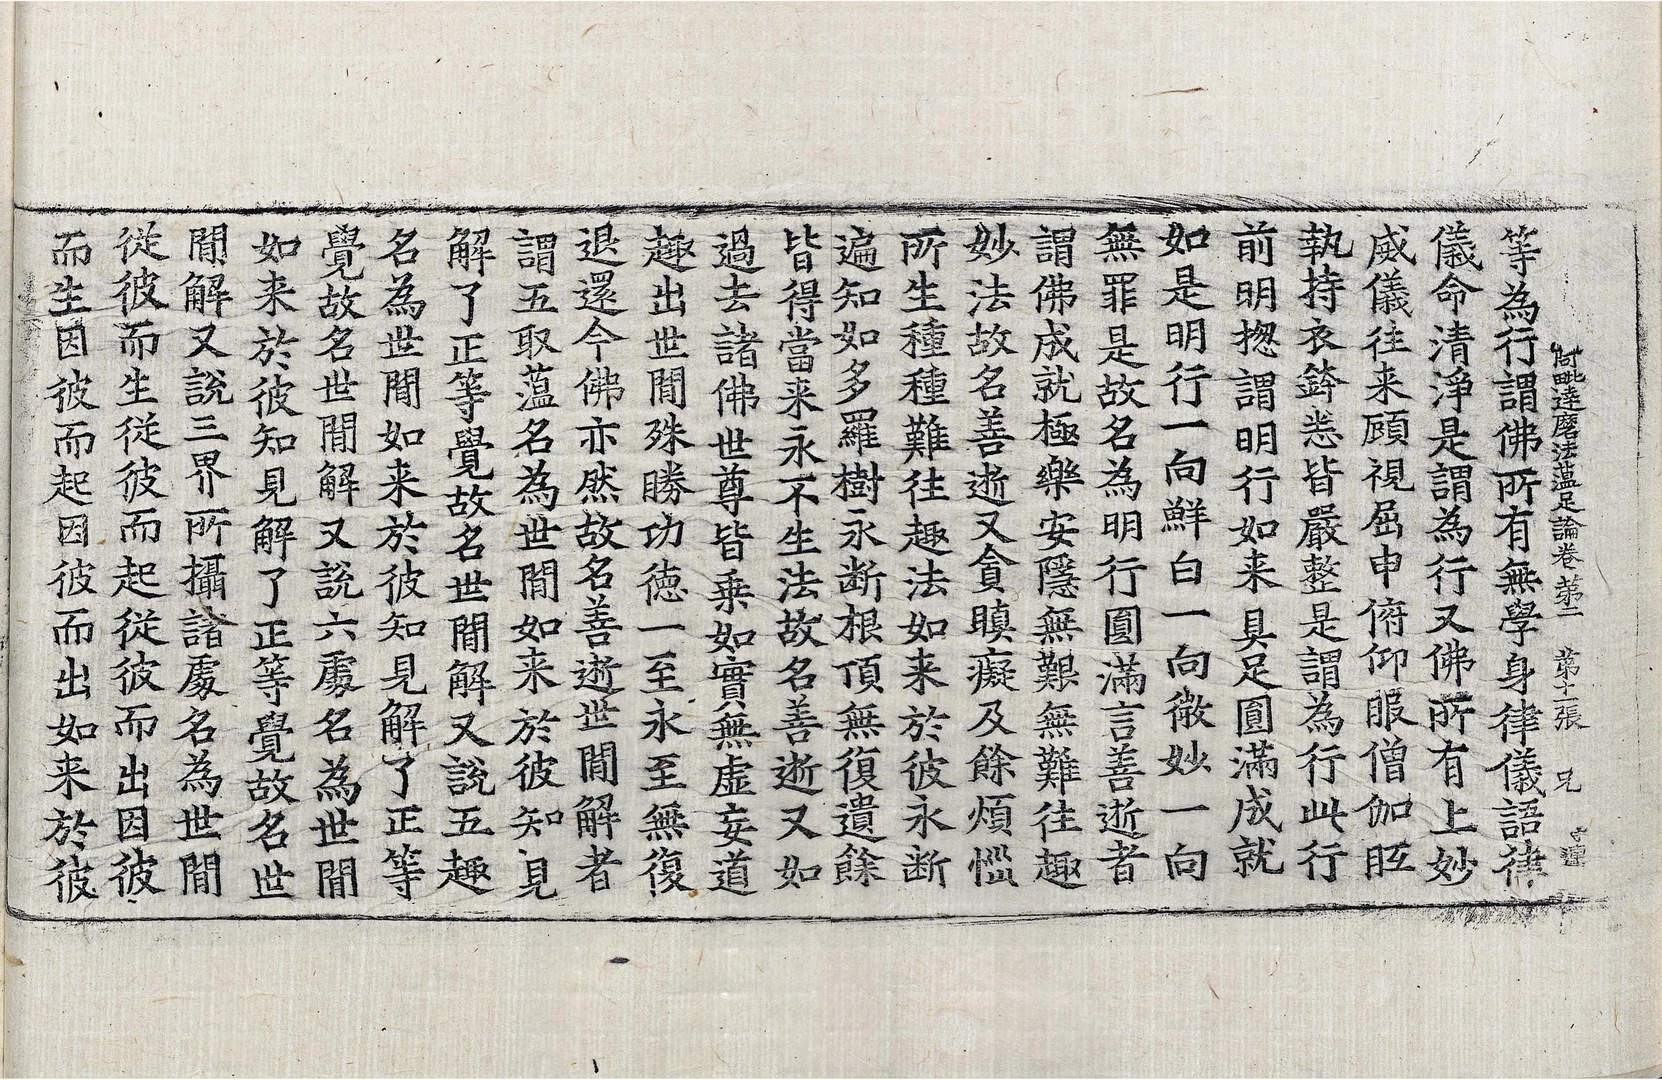 阿毗達磨法蘊足論卷第二 第十二張 兄
等為行謂佛所有無學身律儀語律
儀命清淨是謂為行又佛所有上妙
威儀往来顧視屈申俯仰服僧伽胝
執持衣鉢悉皆嚴整是謂為行此行
前明揔謂明行如来具足圓滿成就
如是明行一向鮮白一向微妙一向
無罪是故名為明行圓滿言善逝者
謂佛成就極樂安隱無艱無難往趣
妙法故名善逝又貪瞋癡及餘煩惱
所生種種難往趣法如来於彼永斷
遍知如多羅樹永斷根頂無復遺餘
皆得當来永不生法故名善逝又如
過去諸佛世尊皆乗如實無虛妄道
趣出世閒殊勝功德一至永至無復
退還今佛亦然故名善逝世閒解者
謂五取蘊名為世閒如来於彼知見
解了正等覺故名世閒解又說五趣
名為世閒如来於彼知見解了正等
覺故名世閒解又說六處名為世閒
如来於彼知見解了正等覺故名世
閒解又說三界所攝諸處名為世閒
從彼而生從彼而起從彼而出因彼
而生因彼而起因彼而出如来於彼